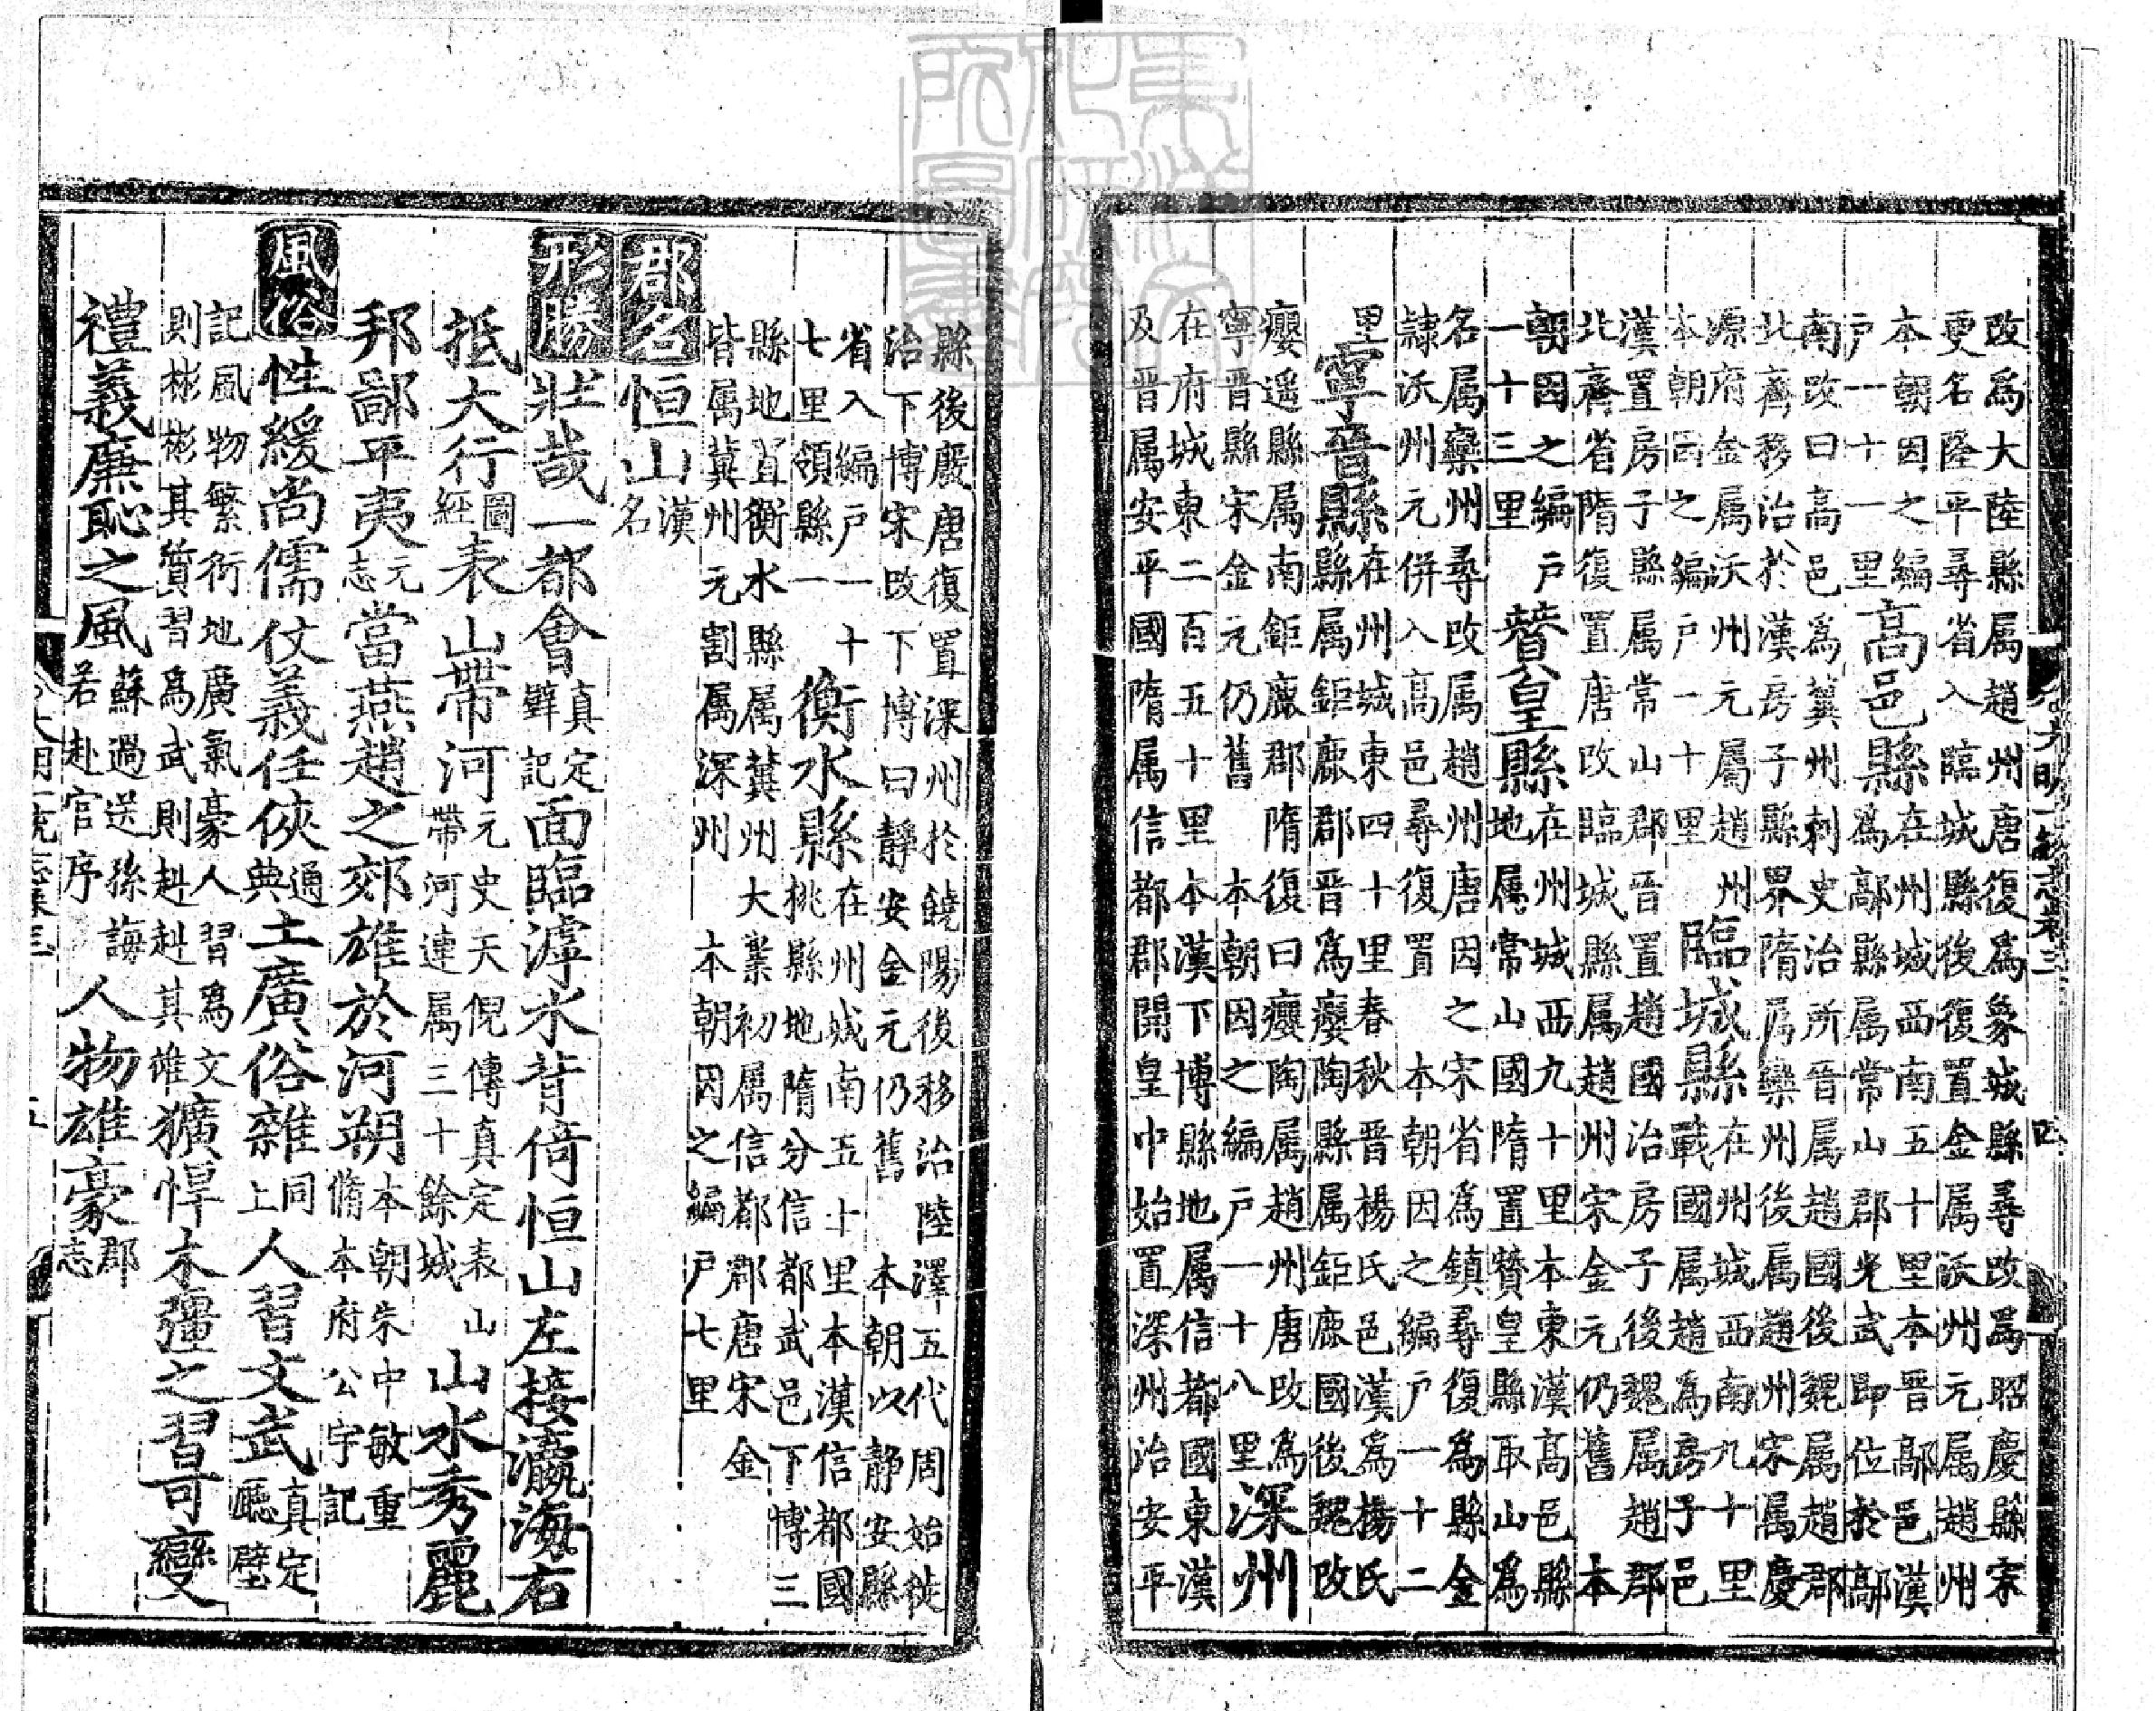 改爲大陸縣属趙州唐復爲象城縣尋改爲昭慶縣宋
更名隆平尋省入臨城縣後復置金属沃州元属趙州
本朝因之編
戸一十一里
高邑縣
在州城西南五十里本晉鄗邑漢
爲鄗縣属常山郡光武即位於鄗
南改曰高邑爲冀州刺史治所晉属趙國後魏属趙郡
北齊移治於漢房子縣界隋属欒州後属趙州宋属慶
源府金属沃州元屬趙州
本朝因之編戸一十里
臨城縣
在州城西南九十里
戰國属趙爲房子邑
漢置房子縣属常山郡晉置趙國治房子後魏属趙郡
北齊省隋復置唐改臨城縣属趙州宋金元仍舊 本
朝因之編戸
一十三里
贊皇縣
在州城西九十里本東漢高邑縣
地属常山國隋置贊皇縣取山爲
名属欒州尋改属趙州唐因之宋省爲鎮尋復爲縣金
隷沃州元併入高邑尋復置 本朝因之編戸一十二
里
寧晉縣
在州城東四十里春秋晉楊氏邑漢爲楊氏
縣属鉅鹿郡晉爲癭陶縣属鉅鹿國後魏改
癭遥縣属南鉅鹿郡隋復曰癭陶属趙州唐改爲
寧晉縣宋金元仍舊 本朝因之編戸一十八里
深州
在府城東二百五十里本漢下博縣地属信都國東漢
及晉属安平國隋属信都郡開皇中始置深州治安平
縣後廢唐復置深州於饒陽後移治陸澤五代周始徙
治下博宋改下博曰靜安金元仍舊 本朝以靜安縣
省入編戸一十
七里領縣一
衡水縣
在州城南五十里本漢信都國
桃縣地隋分信都武邑下博三
縣地置衡水縣属冀州大業初属信都郡唐宋金
皆属冀州元割属深州 本朝因之編戸七里
郡名
恒山
漢
名
形勝
壯哉一都會
真定
壁記
面臨滹水背倚恒山左接瀛海右
抵大行
圖
經
表山帶河
元史天倪傳真定表山
帶河連属三十餘城
山水秀麗
邦鄙平夷
元
志
當燕趙之郊雄於河朔
本朝朱中敏重
脩本府公宇記
風俗
性緩尚儒仗義任俠
通
典
土廣俗雜
同
上
人習文武
真定
廳壁
記風物繁衍地廣氣豪人習爲文
則彬彬其質習爲武則赳赳其雄
獷悍木彊之習可變
禮義廉恥之風
蘇過送孫海
若赴官序
人物雄豪
郡
志
大明一統志卷三
四
大明一統志卷三
五